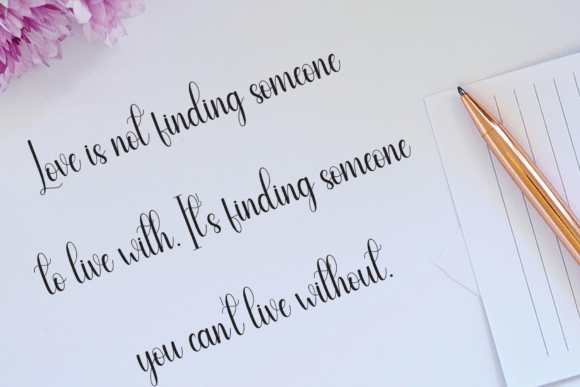 Love is not finding someone
to live with. It's finding someone
you can't live without.